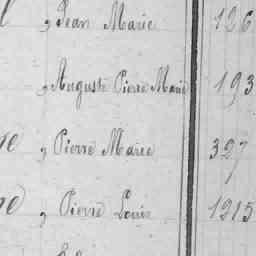 , Jean Marie 126
, Auguste Pierre Marie 193
, Pierre Marie 327
, Pierre Louis 1215